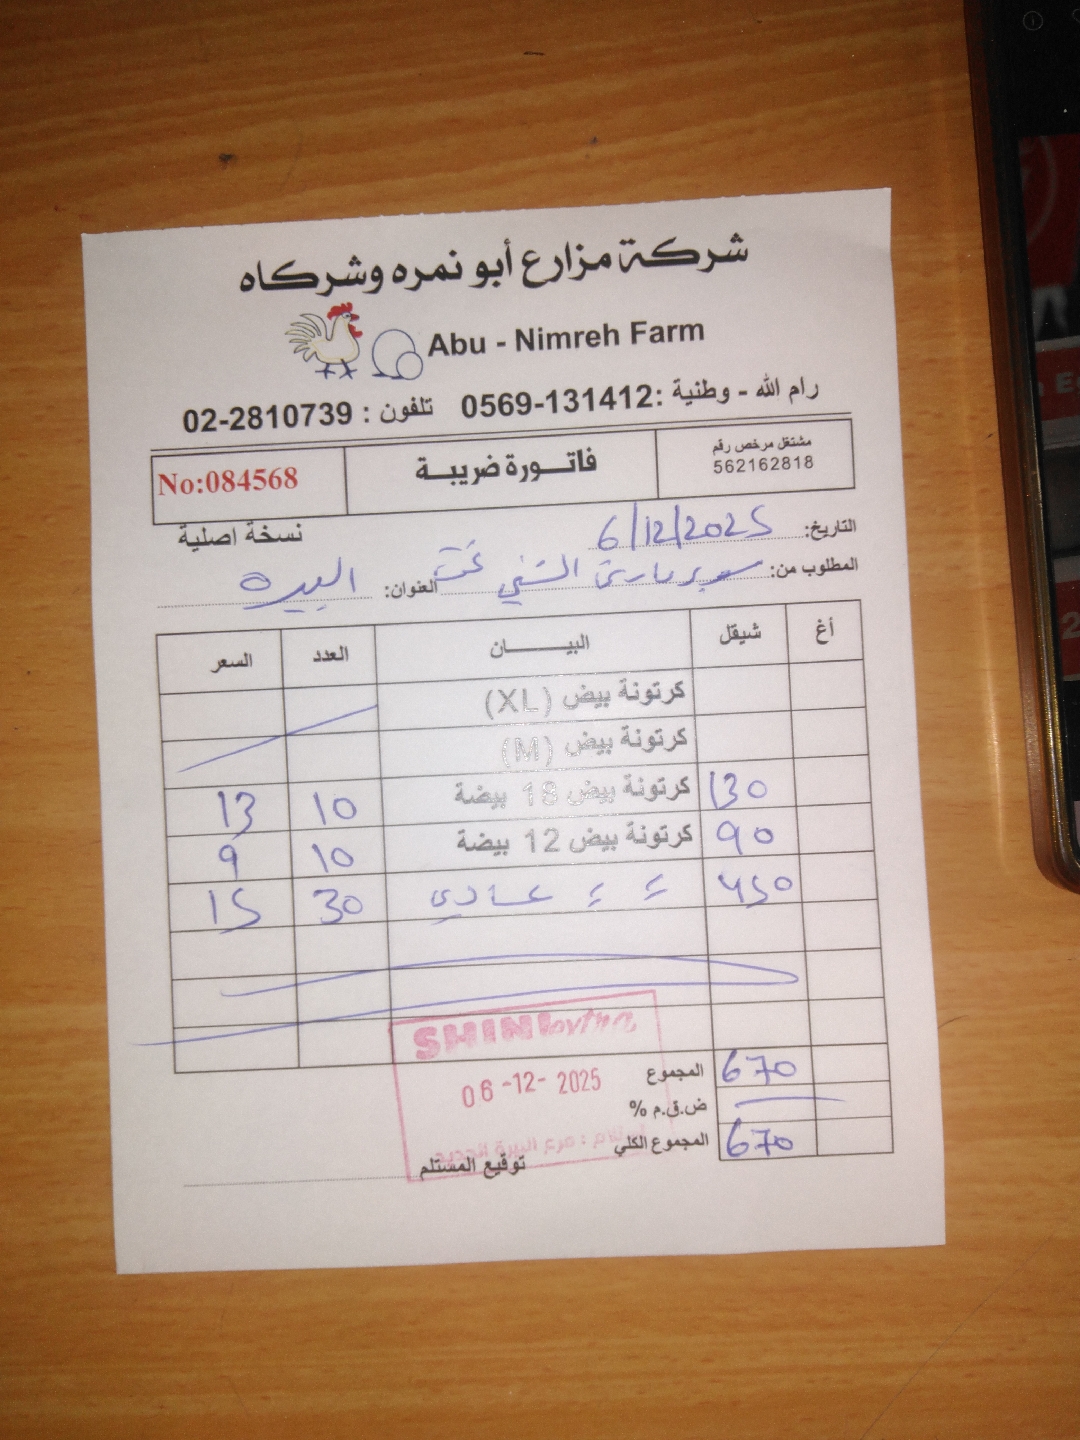 شركة مزارع أبو نمره وشركاه
Abu - Nimreh Farm
رام الله - وطنية :0569-131412 تلفون : 02-2810739
مشتغل مرخص رقم
562162818
فاتورة ضريبة
No:084568
نسخة اصلية
التاريخ: 6/12/2025
المطلوب من: سوبرماركت الشني العنوان: البيره
أغ شيقل البيان العدد السعر
كرتونة بيض (XL)
كرتونة بيض (M)
130 كرتونة بيض 18 بيضة 10 13
90 كرتونة بيض 12 بيضة 10 9
450 = = عادي 30 15
SHINI extra
06-12-2025
المجموع 670
ض.ق.م %
المجموع الكلي 670
استلام : فرع البيرة الجديد
توقيع المستلم